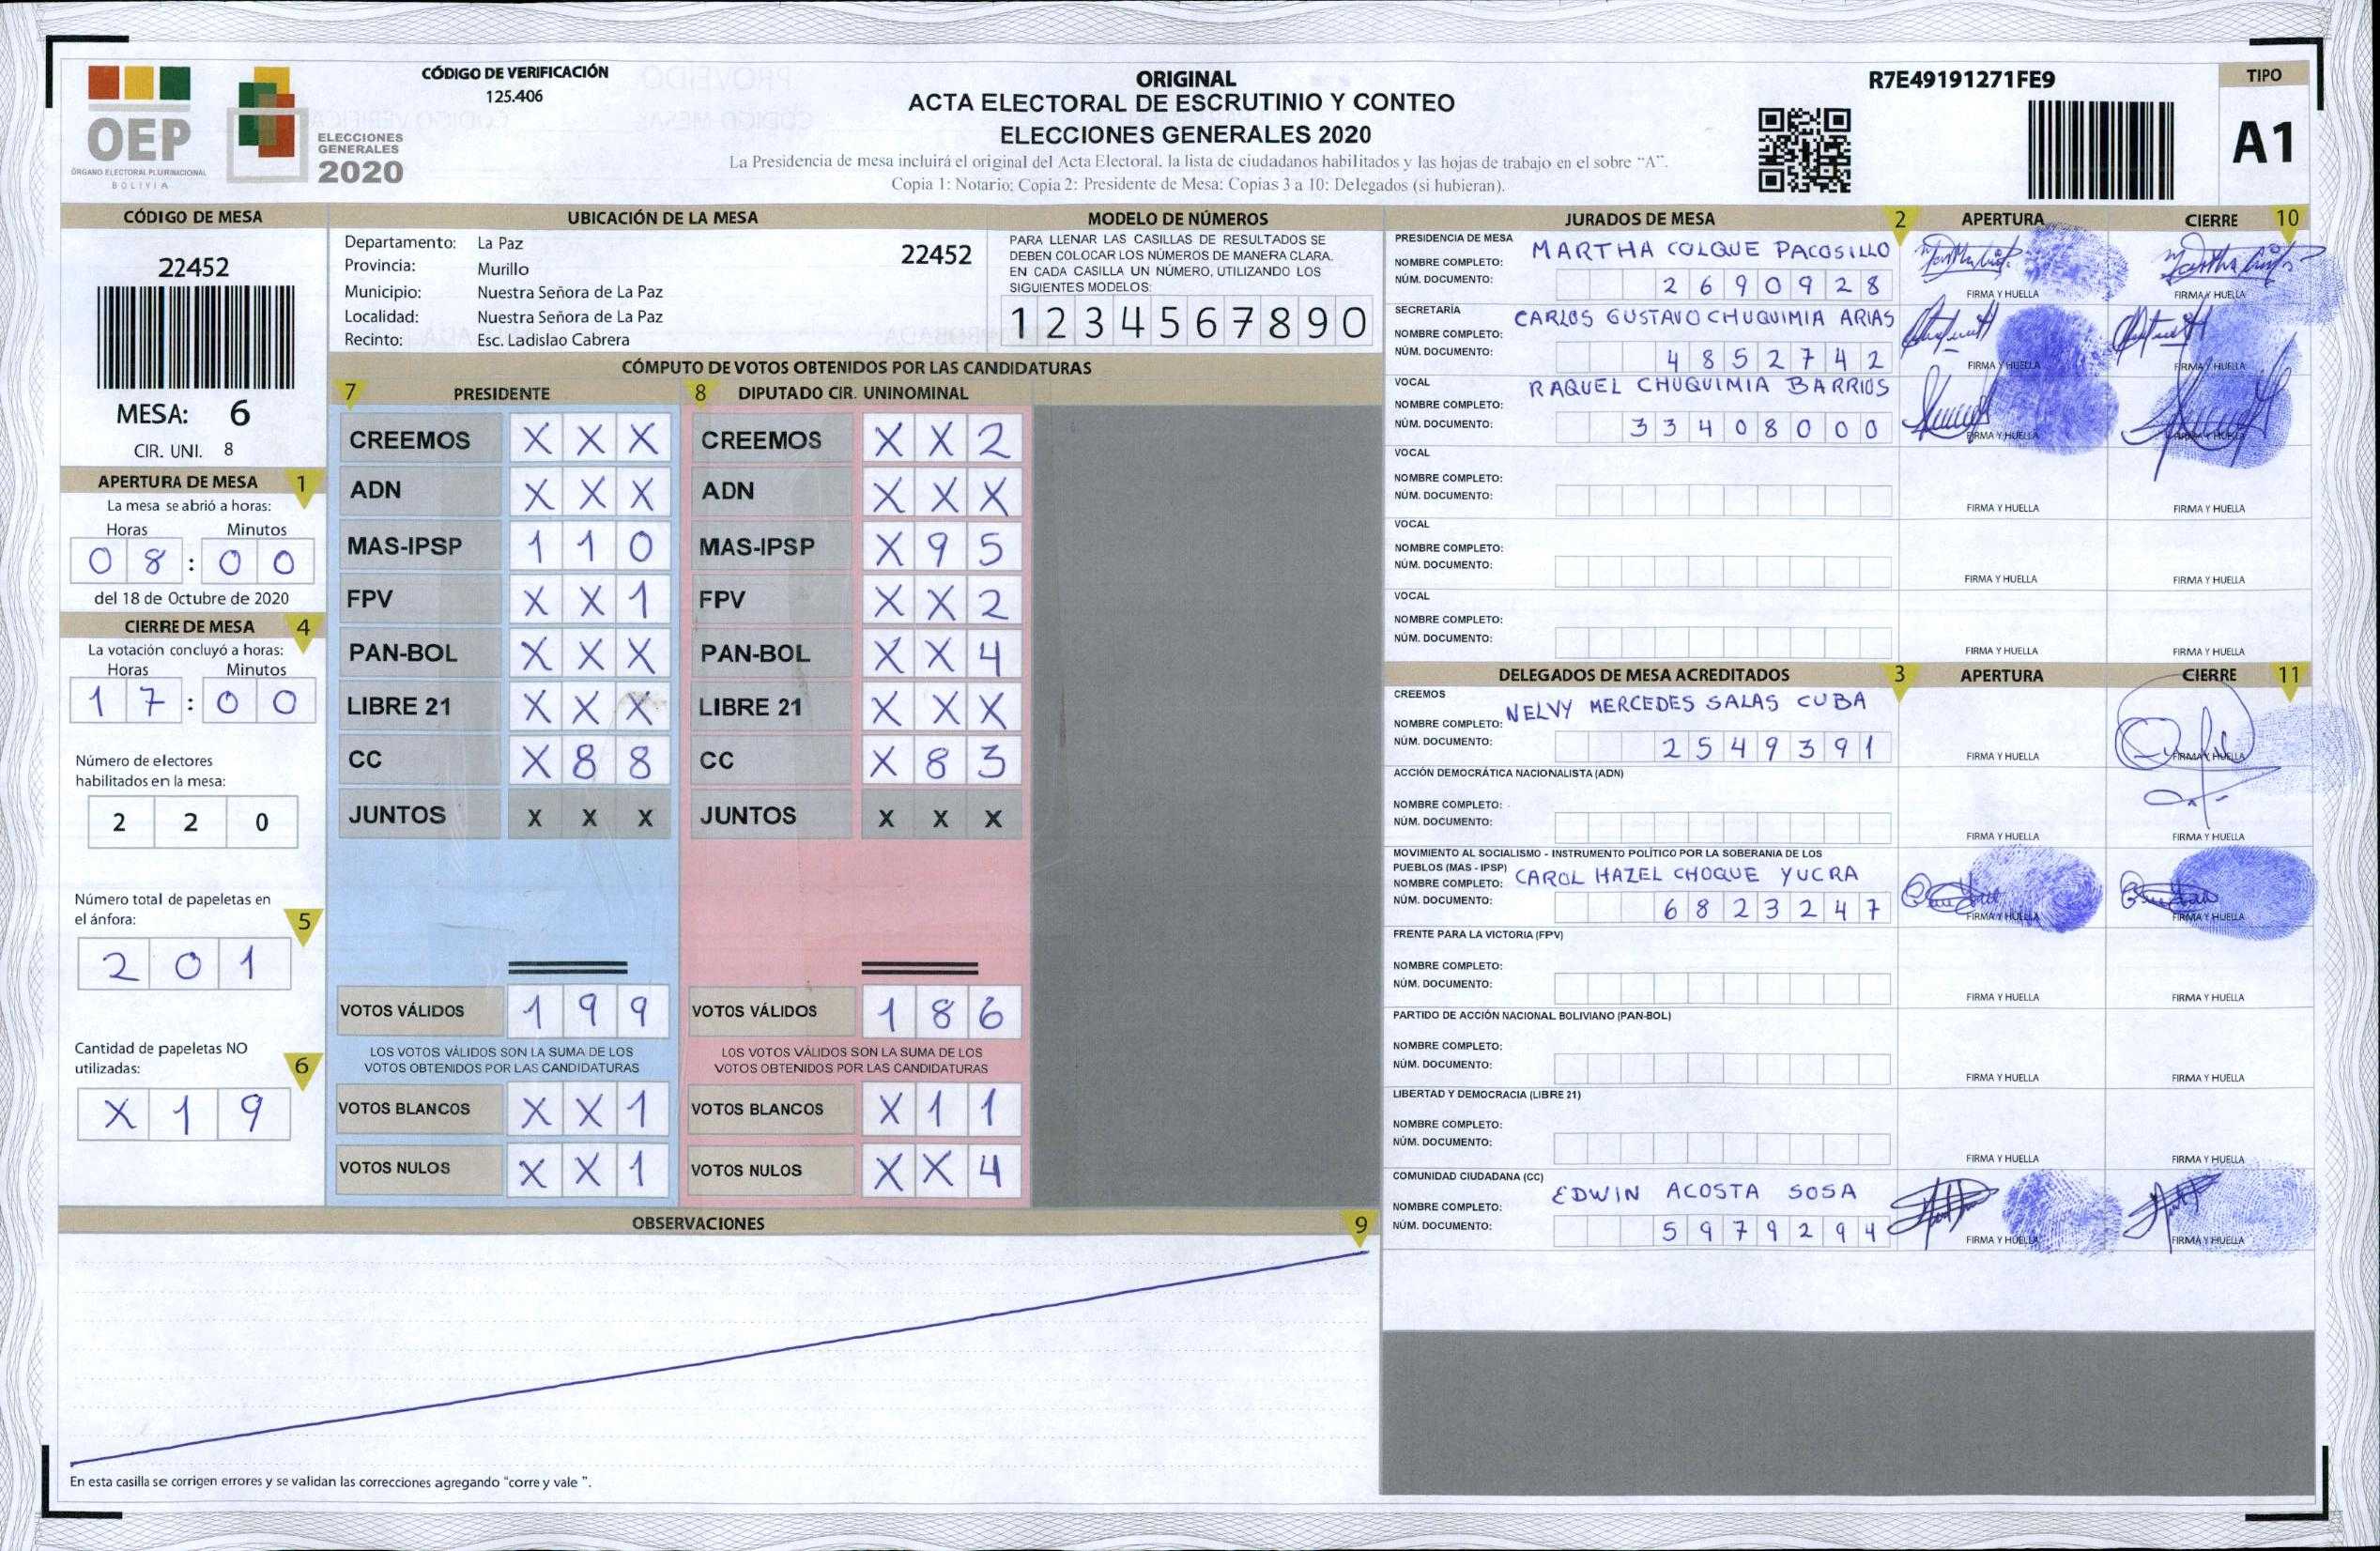 OEP
ÓRGANO ELECTORAL PLURINACIONAL
BOLIVIA
ELECCIONES
GENERALES
2020
CÓDIGO DE VERIFICACIÓN
125.406
ORIGINAL
ACTA ELECTORAL DE ESCRUTINIO Y CONTEO
ELECCIONES GENERALES 2020
La Presidencia de mesa incluirá el original del Acta Electoral, la lista de ciudadanos habilitados y las hojas de trabajo en el sobre "A".
Copia 1: Notario; Copia 2: Presidente de Mesa; Copias 3 a 10: Delegados (si hubieran).
R7E49191271FE9
TIPO
A1
CÓDIGO DE MESA
22452
MESA: 6
CIR. UNI. 8
APERTURA DE MESA 1
La mesa se abrió a horas:
Horas Minutos
0 8 : 0 0
del 18 de Octubre de 2020
CIERRE DE MESA 4
La votación concluyó a horas:
Horas Minutos
1 7 : 0 0
Número de electores
habilitados en la mesa:
2 2 0
Número total de papeletas en
el ánfora: 5
2 0 1
Cantidad de papeletas NO
utilizadas: 6
X 1 9
UBICACIÓN DE LA MESA
Departamento: La Paz 22452
Provincia: Murillo
Municipio: Nuestra Señora de La Paz
Localidad: Nuestra Señora de La Paz
Recinto: Esc. Ladislao Cabrera
MODELO DE NÚMEROS
PARA LLENAR LAS CASILLAS DE RESULTADOS SE
DEBEN COLOCAR LOS NÚMEROS DE MANERA CLARA.
EN CADA CASILLA UN NÚMERO, UTILIZANDO LOS
SIGUIENTES MODELOS:
1 2 3 4 5 6 7 8 9 0
CÓMPUTO DE VOTOS OBTENIDOS POR LAS CANDIDATURAS
7 PRESIDENTE 8 DIPUTADO CIR. UNINOMINAL
CREEMOS X X X CREEMOS X X 2
ADN X X X ADN X X X
MAS-IPSP 1 1 0 MAS-IPSP X 9 5
FPV X X 1 FPV X X 2
PAN-BOL X X X PAN-BOL X X 4
LIBRE 21 X X X LIBRE 21 X X X
CC X 8 8 CC X 8 3
JUNTOS X X X JUNTOS X X X
VOTOS VÁLIDOS 1 9 9 VOTOS VÁLIDOS 1 8 6
LOS VOTOS VÁLIDOS SON LA SUMA DE LOS LOS VOTOS VÁLIDOS SON LA SUMA DE LOS
VOTOS OBTENIDOS POR LAS CANDIDATURAS VOTOS OBTENIDOS POR LAS CANDIDATURAS
VOTOS BLANCOS X X 1 VOTOS BLANCOS X 1 1
VOTOS NULOS X X 1 VOTOS NULOS X X 4
OBSERVACIONES 9
En esta casilla se corrigen errores y se validan las correcciones agregando "corre y vale ".
JURADOS DE MESA 2 APERTURA CIERRE 10
PRESIDENCIA DE MESA
NOMBRE COMPLETO: MARTHA COLQUE PACOSILLO
NÚM. DOCUMENTO: 2 6 9 0 9 2 8
FIRMA Y HUELLA FIRMA Y HUELLA
SECRETARÍA
NOMBRE COMPLETO: CARLOS GUSTAVO CHUQUIMIA ARIAS
NÚM. DOCUMENTO: 4 8 5 2 7 4 2
FIRMA Y HUELLA FIRMA Y HUELLA
VOCAL
NOMBRE COMPLETO: RAQUEL CHUQUIMIA BARRIOS
NÚM. DOCUMENTO: 3 3 4 0 8 0 0 0
FIRMA Y HUELLA FIRMA Y HUELLA
VOCAL
NOMBRE COMPLETO:
NÚM. DOCUMENTO:
FIRMA Y HUELLA FIRMA Y HUELLA
VOCAL
NOMBRE COMPLETO:
NÚM. DOCUMENTO:
FIRMA Y HUELLA FIRMA Y HUELLA
VOCAL
NOMBRE COMPLETO:
NÚM. DOCUMENTO:
FIRMA Y HUELLA FIRMA Y HUELLA
DELEGADOS DE MESA ACREDITADOS 3 APERTURA CIERRE 11
CREEMOS
NOMBRE COMPLETO: NELVY MERCEDES SALAS CUBA
NÚM. DOCUMENTO: 2 5 4 9 3 9 1
FIRMA Y HUELLA FIRMA Y HUELLA
ACCIÓN DEMOCRÁTICA NACIONALISTA (ADN)
NOMBRE COMPLETO:
NÚM. DOCUMENTO:
FIRMA Y HUELLA FIRMA Y HUELLA
MOVIMIENTO AL SOCIALISMO - INSTRUMENTO POLÍTICO POR LA SOBERANIA DE LOS
PUEBLOS (MAS - IPSP)
NOMBRE COMPLETO: CAROL HAZEL CHOQUE YUCRA
NÚM. DOCUMENTO: 6 8 2 3 2 4 7
FIRMA Y HUELLA FIRMA Y HUELLA
FRENTE PARA LA VICTORIA (FPV)
NOMBRE COMPLETO:
NÚM. DOCUMENTO:
FIRMA Y HUELLA FIRMA Y HUELLA
PARTIDO DE ACCIÓN NACIONAL BOLIVIANO (PAN-BOL)
NOMBRE COMPLETO:
NÚM. DOCUMENTO:
FIRMA Y HUELLA FIRMA Y HUELLA
LIBERTAD Y DEMOCRACIA (LIBRE 21)
NOMBRE COMPLETO:
NÚM. DOCUMENTO:
FIRMA Y HUELLA FIRMA Y HUELLA
COMUNIDAD CIUDADANA (CC)
NOMBRE COMPLETO: EDWIN ACOSTA SOSA
NÚM. DOCUMENTO: 5 9 7 9 2 9 4
FIRMA Y HUELLA FIRMA Y HUELLA